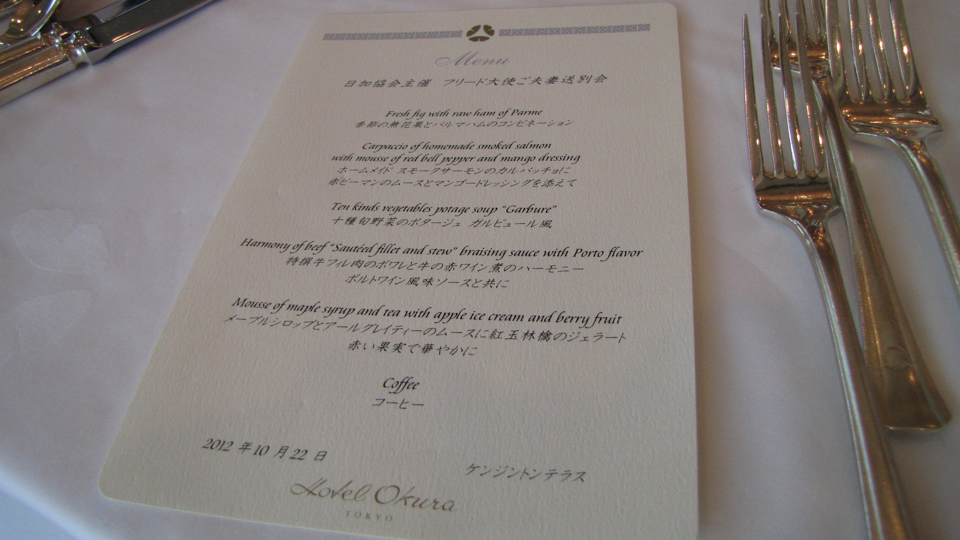 Menu
日加協会主催 フリード大使ご夫妻送別会
Fresh fig with raw ham of Parme
季節の無花果とパルマハムのコンビネーション
Carpaccio of homemade smoked salmon
with mousse of red bell pepper and mango dressing
ホームメイド スモークサーモンのカルパッチョに
赤ピーマンのムースとマンゴードレッシングを添えて
Ten kinds vegetables potage soup "Garbure"
十種旬野菜のポタージュ ガルビュール風
Harmony of beef "Sautéed fillet and stew" braising sauce with Porto flavor
特撰牛フィレ肉のポワレと牛の赤ワイン煮のハーモニー
ポルトワイン風味ソースと共に
Mousse of maple syrup and tea with apple ice cream and berry fruit
メープルシロップとアールグレイティーのムースに紅玉林檎のジェラート
赤い果実で華やかに
Coffee
コーヒー
2012 年 10 月 22 日
ケンジントンテラス
Hotel Okura
TOKYO